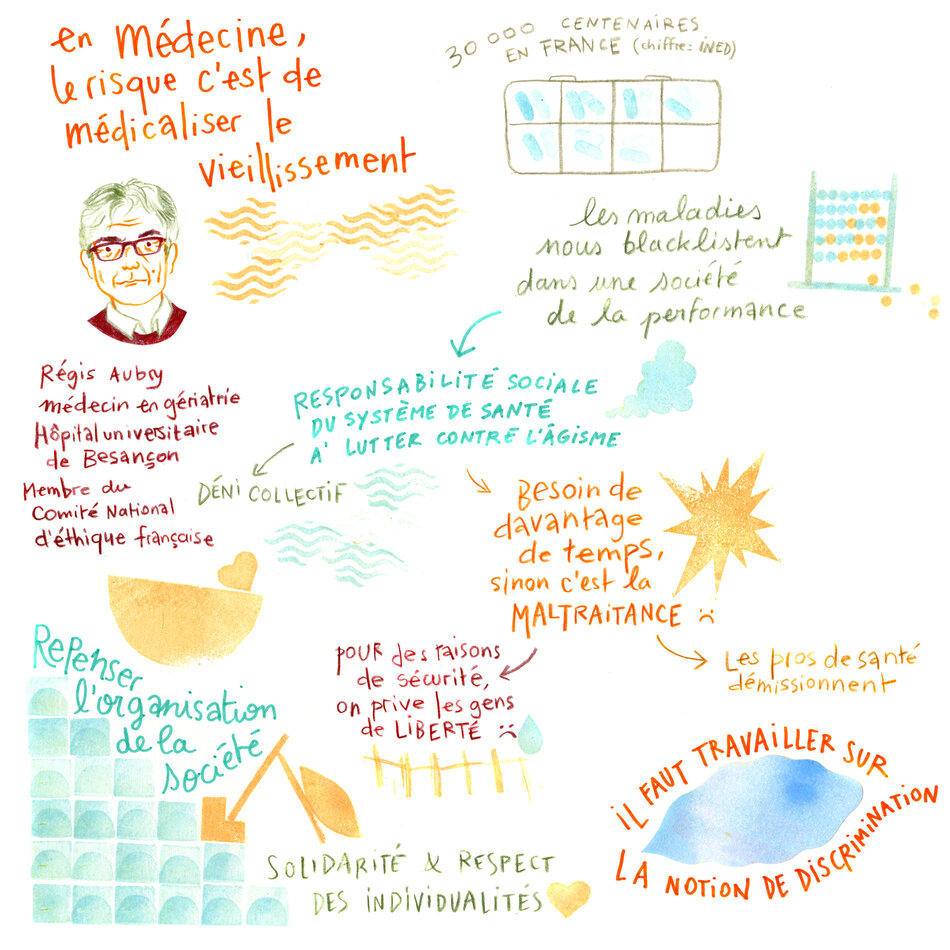 en Médecine,
le risque c'est de
médicaliser le
vieillissement
30 000 CENTENAIRES
EN FRANCE (chiffre: iNED)
les maladies
nous blacklistent
dans une société
de la performance
Régis Aubry
médecin en gériatrie
Hôpital universitaire
de Besançon
Membre du
Comité National
d'éthique française
RESPONSABILITÉ SOCIALE
DU SYSTÈME DE SANTÉ
A' LUTTER CONTRE L'ÂGISME
DÉNI COLLECTIF
Besoin de
davantage
de temps,
sinon c'est la
MALTRAITANCE :(
Repenser
l'organisation
de la
société
pour des raisons
de sécurité,
on prive les gens
de LIBERTÉ :(
Les pros de santé
démissionnent
SOLIDARITÉ & RESPECT
DES INDIVIDUALITÉS
IL FAUT TRAVAILLER SUR
LA NOTION DE DISCRIMINATION